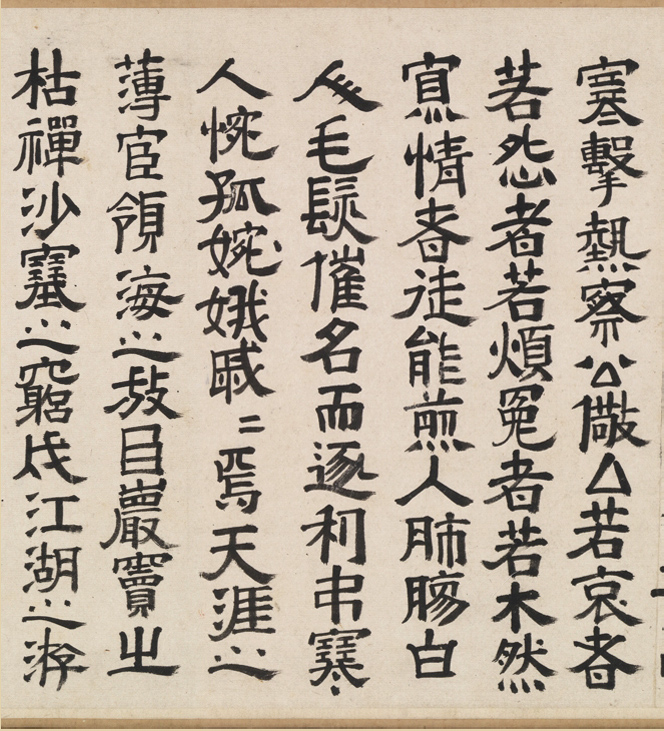 寒擊熱察厶儆△若哀者
若怨者若煩冤者若木然
冥情者徒能煎人肺腸白
人毛髮催名而逐利弔寒
人惋孤婉娥戚〻焉天涯之
薄宦領海之放目巖竇之
枯禪沙塞之窮戍江湖之游